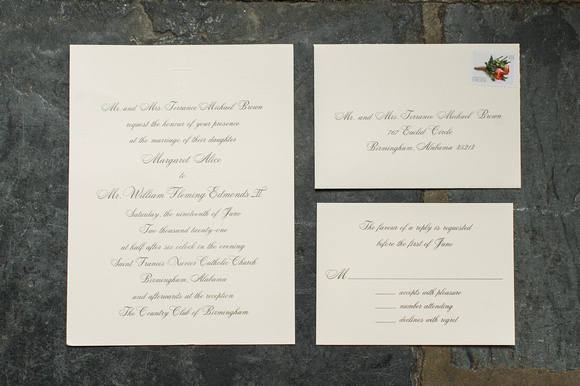 Mr. and Mrs. Terrance Michael Brown
request the honour of your presence
at the marriage of their daughter
Margaret Alice
to
Mr. William Fleming Edmonds II
Saturday, the nineteenth of June
Two thousand twenty-one
at half after six o'clock in the evening
Saint Francis Xavier Catholic Church
Birmingham, Alabama
and afterwards at the reception
The Country Club of Birmingham
Mr. and Mrs. Terrance Michael Brown
767 Euclid Circle
Birmingham, Alabama 35213
The favour of a reply is requested
before the first of June
M
accepts with pleasure
number attending
declines with regret